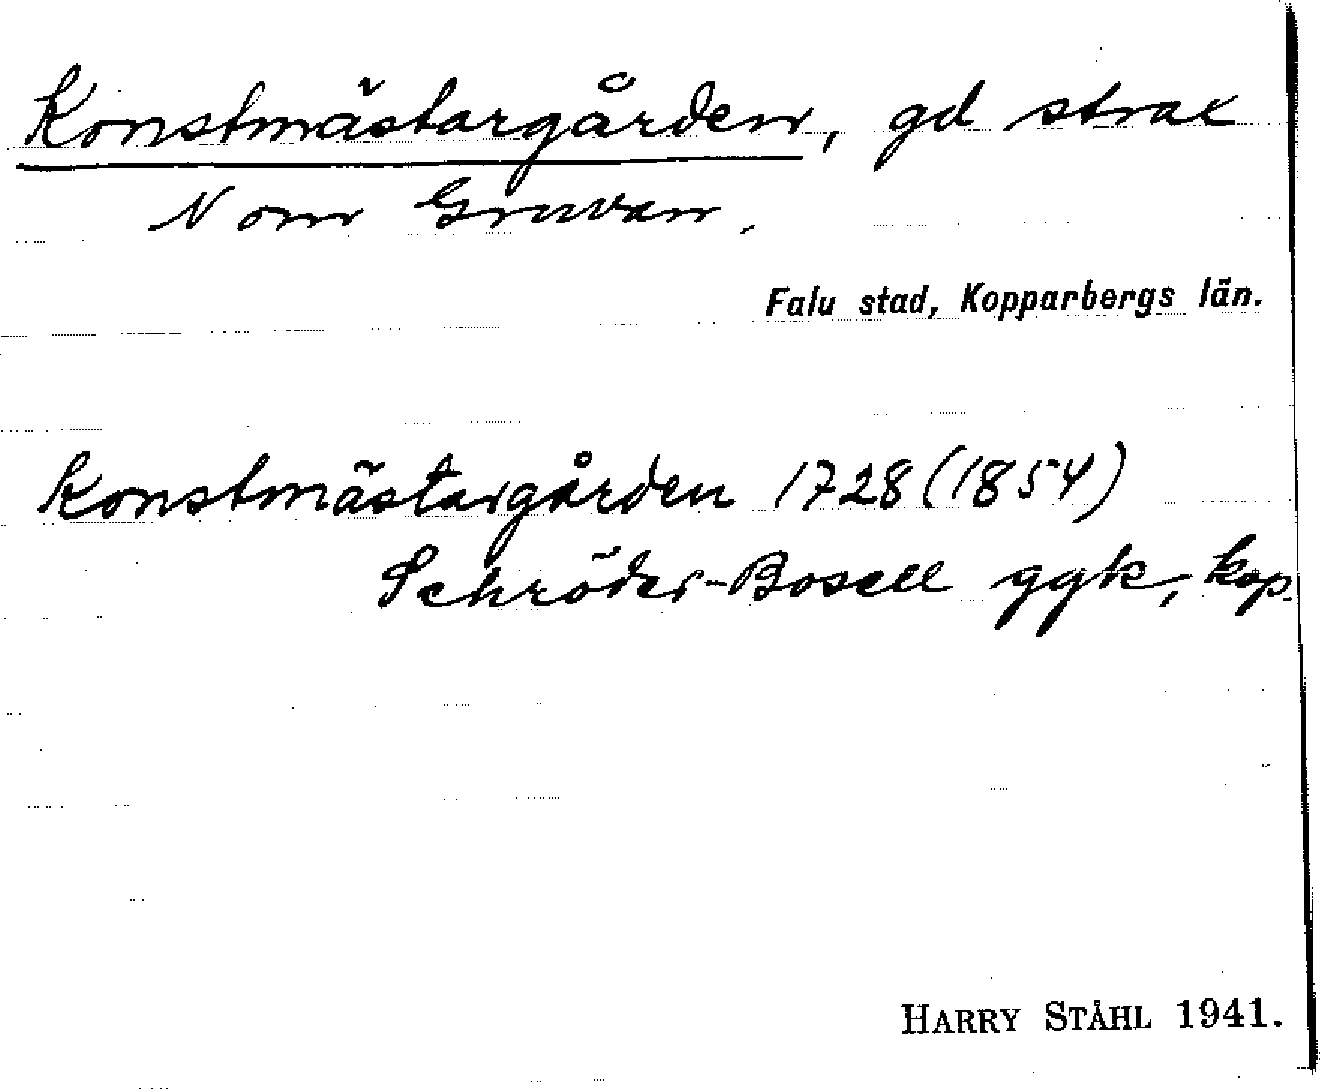 Konstmästargården, gd strax
N om Gruvan.
Falu stad, Kopparbergs län.
Konstmästargården 1728 (1854)
Schröder-Bosell ggk, kop.
HARRY STÅHL 1941.